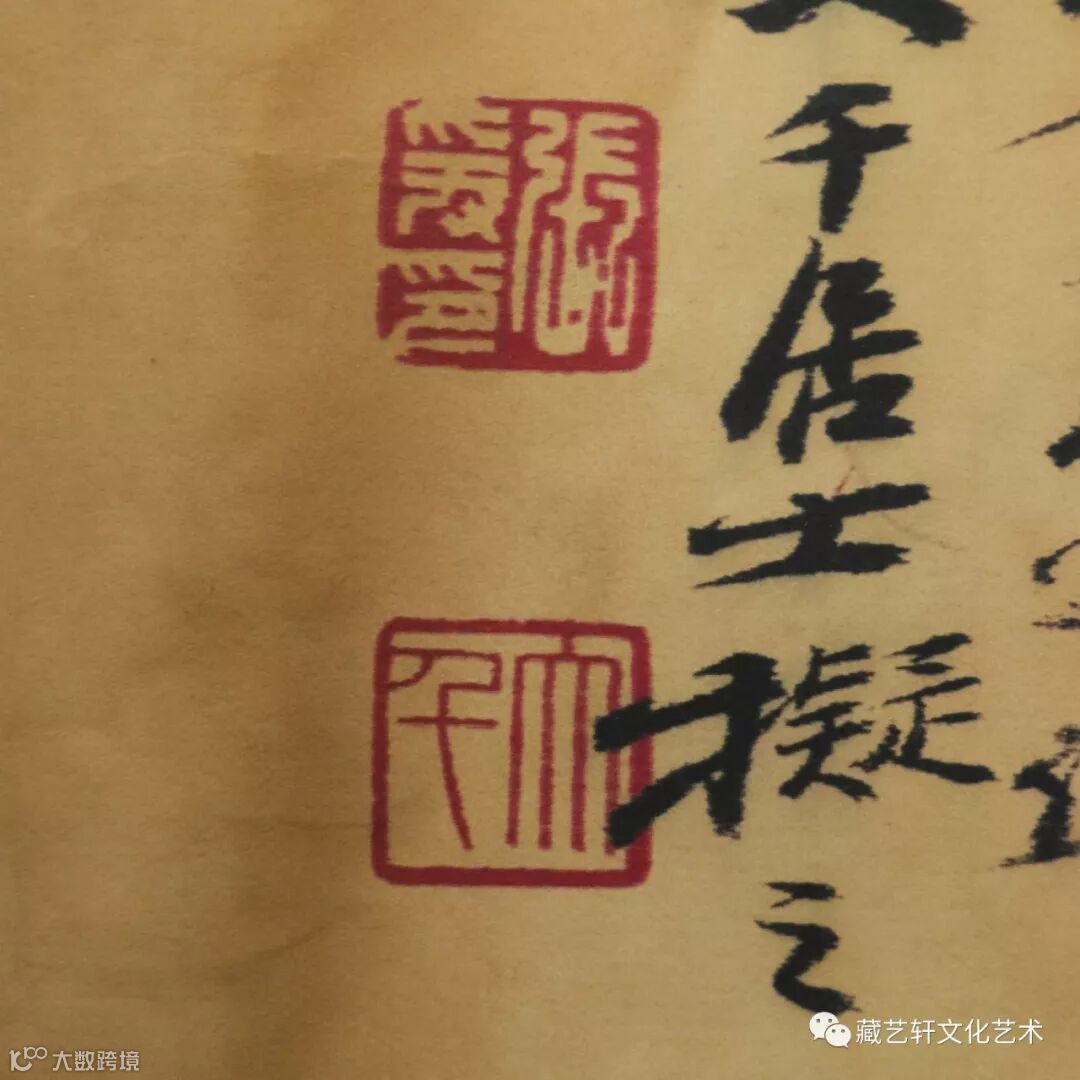 大千居士擬之
張爰印
大千
藏艺轩文化艺术
大数跨境